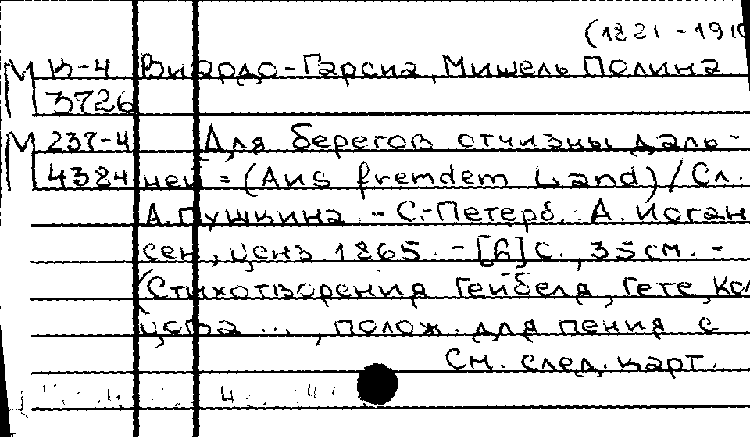 (1821-1910
М В-4 Виардо-Гарсиа, Мишель Полина
3726
М 237-4 Для берегов отчизны даль-
4384 ней = (Aus fremdem Land) / Сл.
А. Пушкина. - С.-Петерб.: А. Иоган
сен, ценз 1865. - [6] с., 35 см. -
(Стихотворения Гейбеля, Гете, Кол
цова ..., полож. для пения с
См. след. карт.